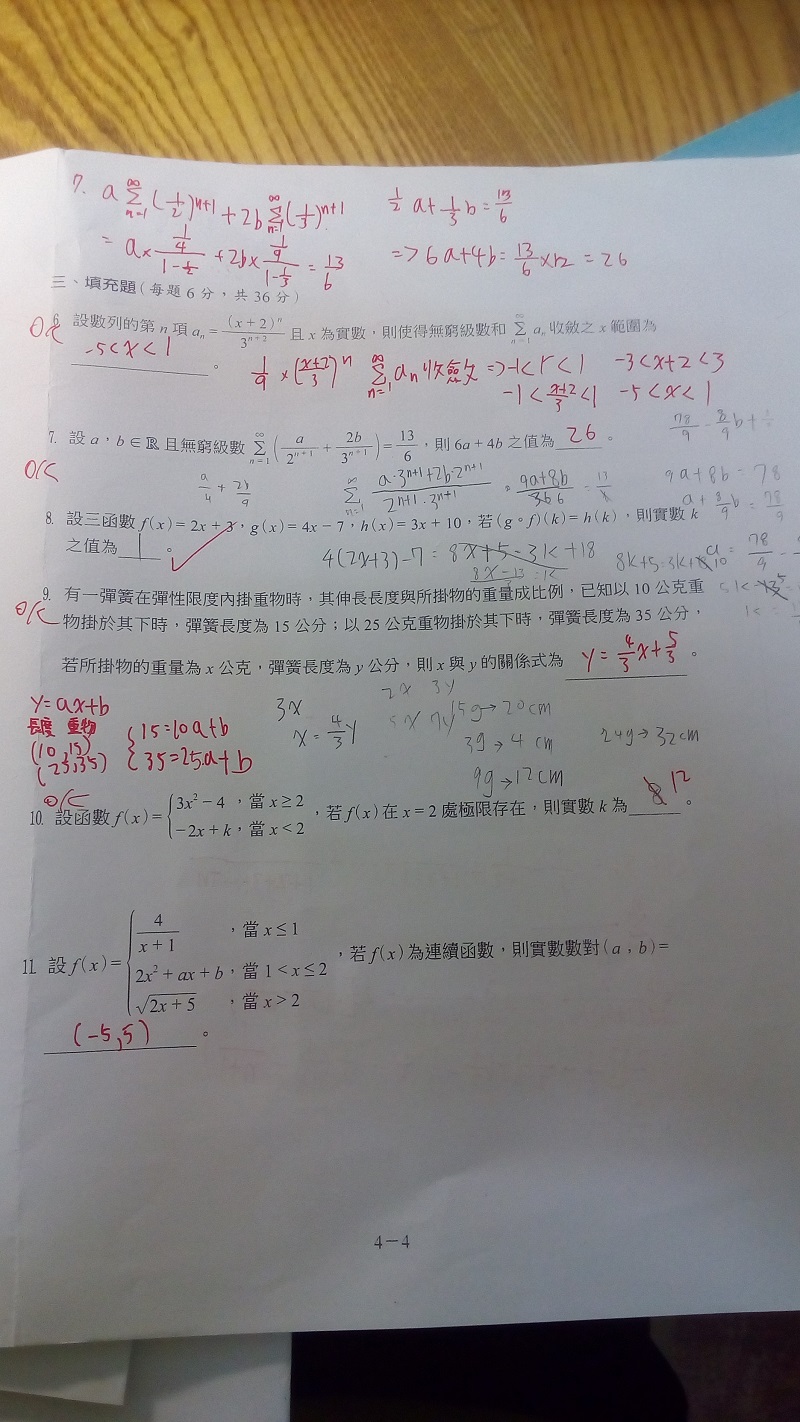 7. a ∑_{n=1}^{∞} (1/2)^{n+1} + 2b ∑_{n=1}^{∞} (1/3)^{n+1}    1/2 a + 1/3 b = 13/6
= a × (1/4)/(1-1/2) + 2b × (1/9)/(1-1/3) = 13/6    => 6a+4b = 13/6 × 12 = 26
三、填充題(每題 6 分,共 36 分)
6. 設數列的第 n 項 a_n = (x+2)^n / 3^{n+2} 且 x 為實數,則使得無窮級數和 ∑_{n=1}^{∞} a_n 收斂之 x 範圍為
OK
-5<x<1 。 1/9 × ((x+2)/3)^n  ∑_{n=1}^{∞} a_n 收斂 => -1<r<1  -3<x+2<3
-1 < (x+2)/3 < 1  -5<x<1
7. 設 a,b∈ℝ 且無窮級數 ∑_{n=1}^{∞} (a/2^{n+1} + 2b/3^{n+1}) = 13/6,則 6a+4b 之值為 26 。
OK
a/4 + 2b/9   ∑_{n=1}^{∞} (a·3^{n+1}+2b·2^{n+1})/(2^{n+1}·3^{n+1})   9a+8b = 78
8. 設三函數 f(x)=2x+3,g(x)=4x-7,h(x)=3x+10,若 (g∘f)(k)=h(k),則實數 k
之值為 1 。 4(2x+3)-7 = 8x+5 = 3k+18
9. 有一彈簧在彈性限度內掛重物時,其伸長長度與所掛物的重量成比例,已知以 10 公克重
OK
物掛於其下時,彈簧長度為 15 公分;以 25 公克重物掛於其下時,彈簧長度為 35 公分,
若所掛物的重量為 x 公克,彈簧長度為 y 公分,則 x 與 y 的關係式為 y = 4/3 x + 5/3 。
y=ax+b
長度 重物
(10,15)  { 15=10a+b
(25,35)  { 35=25a+b
3x
x = 4/3 y
2x 3y
15g→20cm
3g→4 cm  24g→32cm
9g→12cm
OK
10. 設函數 f(x)= { 3x²-4 ,當 x≥2 ; -2x+k ,當 x<2 ,若 f(x) 在 x=2 處極限存在,則實數 k 為 12 。
11. 設 f(x)= { 4/(x+1) ,當 x≤1 ; 2x²+ax+b ,當 1<x≤2 ; √(2x+5) ,當 x>2 ,若 f(x) 為連續函數,則實數數對 (a,b)=
(-5,5) 。
4－4